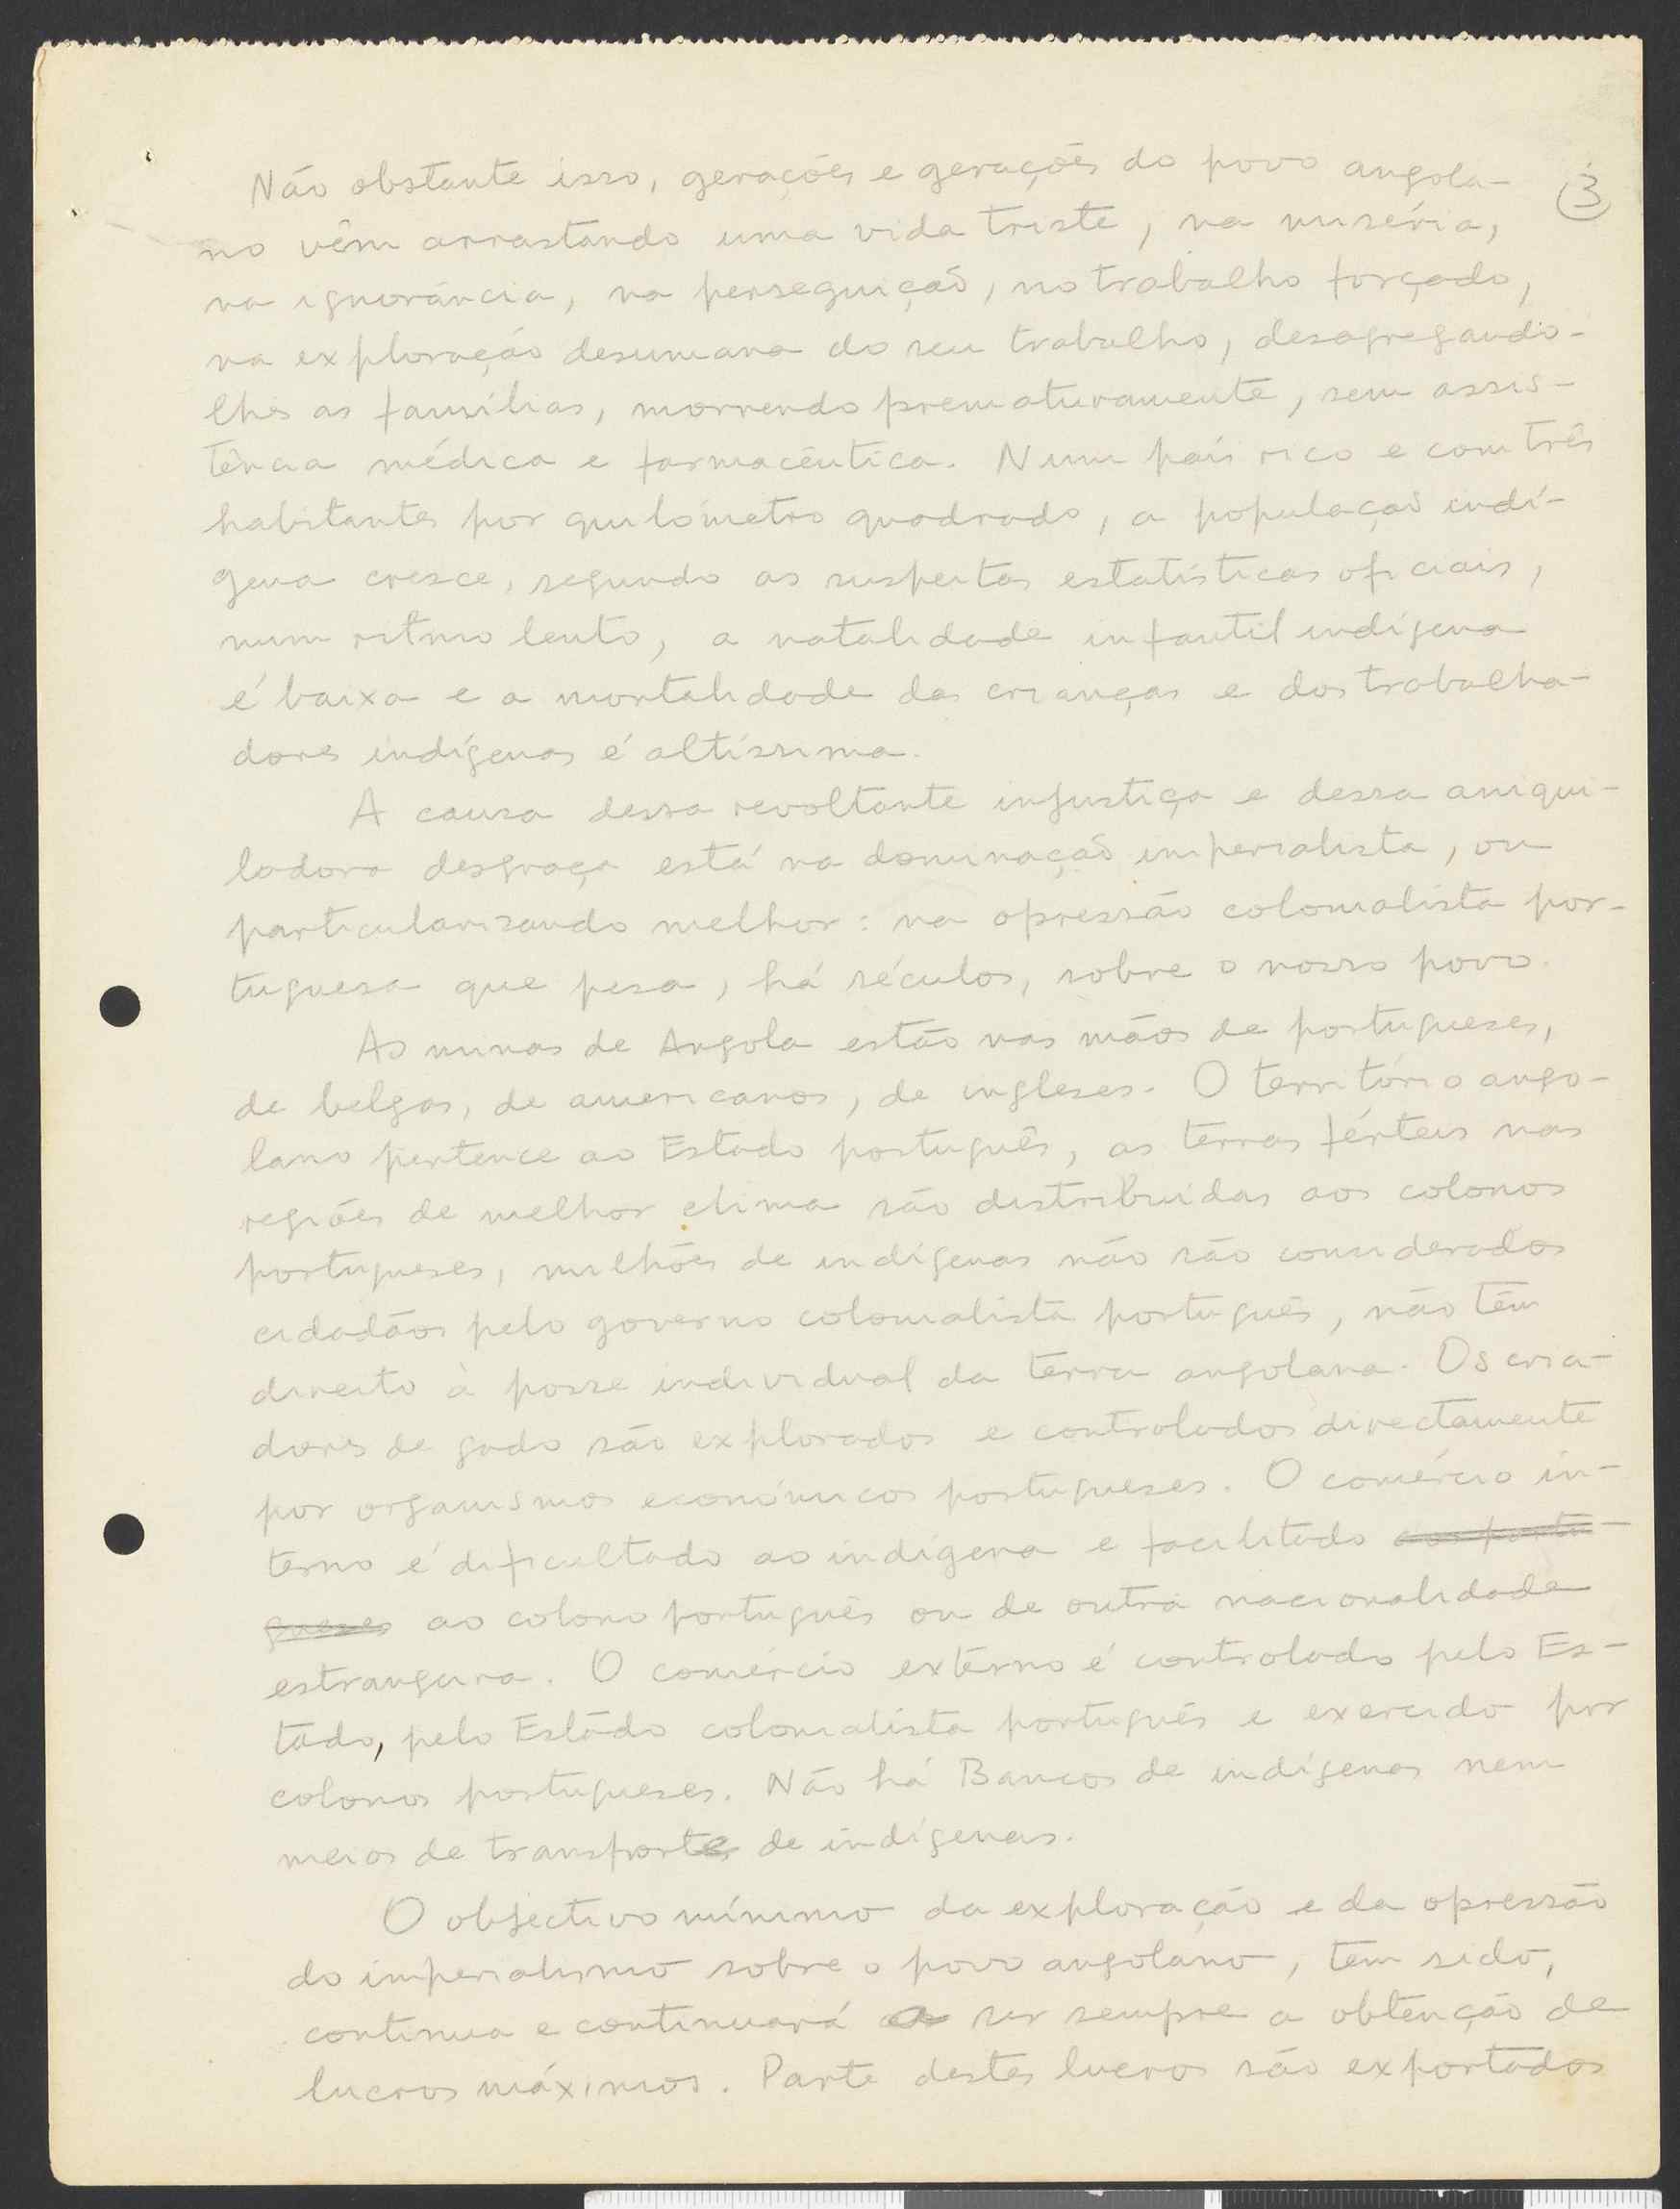 Não obstante isso, gerações e gerações do povo angola-
③
no vêm arrastando uma vida triste, na miséria,
na ignorância, na perseguição, no trabalho forçado,
na exploração desumana do seu trabalho, desagregando-
lhes as famílias, morrendo prematuramente, sem assis-
tência médica e farmacêutica. Num país rico e com três
habitantes por quilómetro quadrado, a população indí-
gena cresce, segundo as suspeitas estatísticas oficiais,
num ritmo lento, a natalidade infantil indígena
é baixa e a mortalidade das crianças e dos trabalha-
dores indígenas é altíssima.
A causa dessa revoltante injustiça e dessa aniqui-
ladora desgraça está na dominação imperialista, ou
particularisando melhor: na opressão colonialista por-
tuguesa que pesa, há séculos, sobre o nosso povo.
As minas de Angola estão nas mãos de portugueses,
de belgas, de americanos, de ingleses. O território ango-
lano pertence ao Estado português, as terras férteis nas
regiões de melhor clima são distribuidas aos colonos
portugueses, milhões de indígenas não são considerados
cidadãos pelo governo colonialista português, não têm
direito à posse individual da terra angolana. Os cria-
dores de gado são explorados e controlados directamente
por organismos económicos portugueses. O comércio in-
terno é dificultado ao indígena e facilitado aos portu-
gueses ao colono português ou de outra nacionalidade
estrangeira. O comércio externo é controlado pelo Es-
tado, pelo Estado colonialista português e exercido por
colonos portugueses. Não há Bancos de indígenas nem
meios de transporte de indígenas.
O objectivo mínimo da exploração e da opressão
do imperialismo sobre o povo angolano, tem sido,
continua e continuará a ser sempre a obtenção de
lucros máximos. Parte destes lucros são exportados